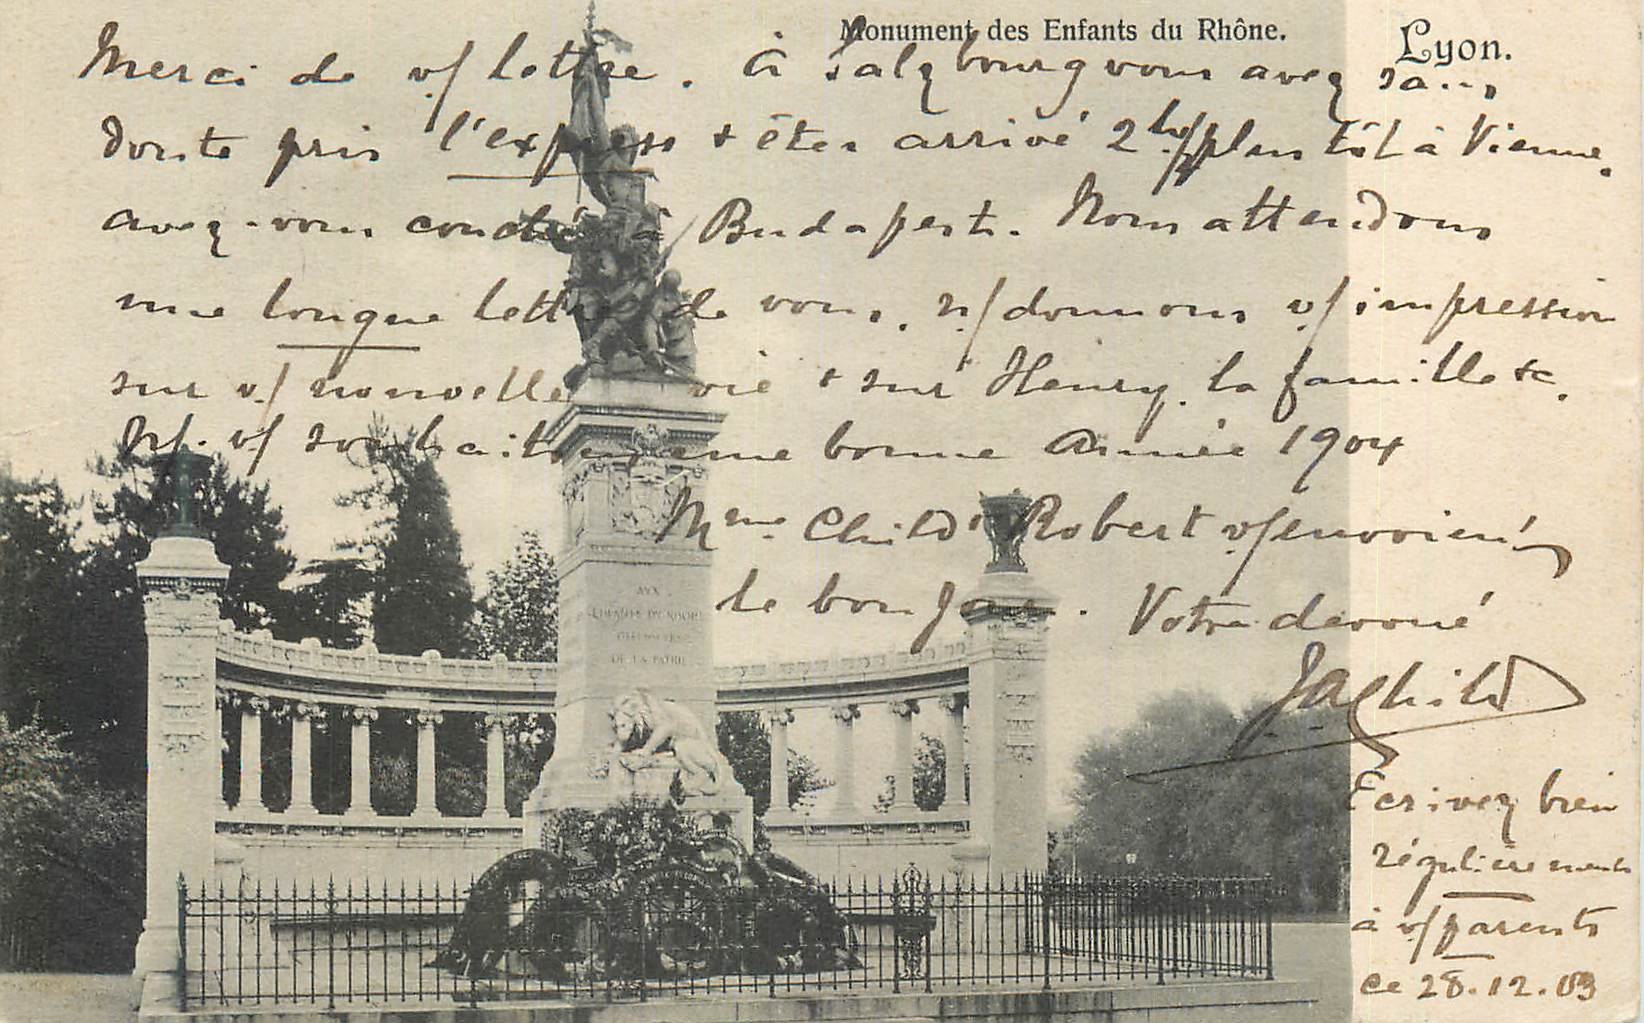 Monument des Enfants du Rhône.
Lyon.
Merci de v/ lettre. à Salzbourg vous avez sans
doute pris l'express + êtes arrivé 2 h/ plus tôt à Vienne.
avez-vous couché à Budapest. Nous attendons
une longue lettre de vous. n/ donnons v/ impression
sur v/ nouvelle vie + sur Henry, la famille &c.
N/. v/ souhaitons une bonne Année 1904
Mme Child & Robert v/ envoient
le bonjour. Votre dévoué
JAChild
Ecrivez bien
régulièrement
à v/ parents
ce 28.12.03
AUX
ENFANTS DU RHÔNE
DÉFENSEURS
DE LA PATRIE